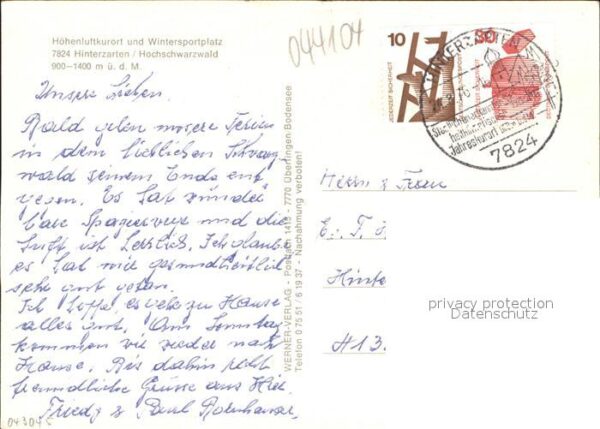 Höhenluftkurort und Wintersportplatz
7824 Hinterzarten / Hochschwarzwald
900-1400 m ü. d. M.
044104
10
30
JEDERZEIT SICHERHEIT
HINTERZARTEN
Jahreskurort
7824
Unsere Lieben.
Bald gehen unsere Ferien
in dem lieblichen Schwarz
wald seinem Ende ent
gegen. Es hat wunder
bare Spazierwege und die
Luft ist herrlich. Ich glaube
es hat mir gesundheitlich
sehr gut getan.
Ich hoffe, es gehe zu Hause
alles gut. Am Sonntag
kommen wir wieder nach
Hause. Bis dahin recht
freundliche Grüsse aus Hint.
Friedy & Paul
WERNER-VERLAG - Postfach 1418 - 7770 Überlingen Bodensee
Telefon 0 75 51 / 6 19 37 - Nachahmung verboten!
Herrn & Frau
E. T.
Hinte
413.
privacy protection
Datenschutz
043045